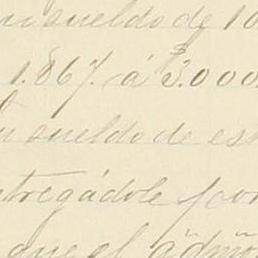 sueldo de 10
1.867. á $3.000
su sueldo de es
tregádole por
que el admõr